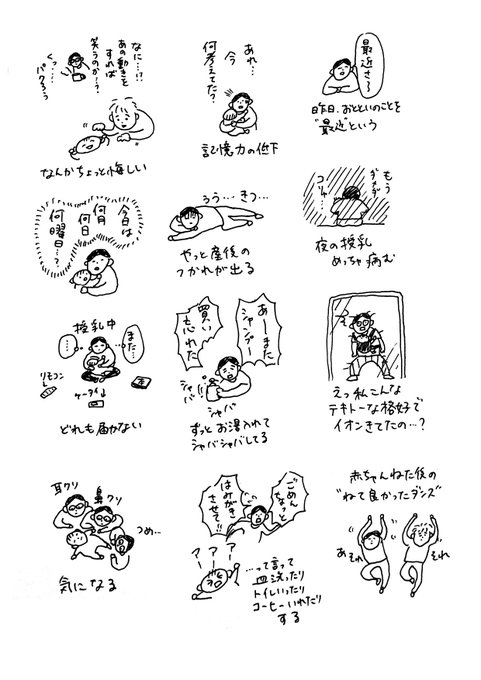 なに…!?
あの動きを
すれば
笑うのか…?
くっ…
パクろう
なんかちょっと悔しい
あれ…
今
何考えてた?
記憶力の低下
最近さ〜
昨日、おとといのことを
"最近"という
今日は
何月
何日
何曜日…?
ううう… きつ…
やっと産後の
つかれが出る
もう
ダメダ
コリャ…
夜の授乳
めっちゃ病む
授乳中
また…
リモコン
ケータイ↓
どれも届かない
あーまた
シャンプー
買い
忘れた
シャバ!!
シャバ
ずっとお湯入れて
シャバシャバしてる
えっ私こんな
テキトーな格好で
イオンきてたの…?
耳クソ
鼻クソ
つめ…
気になる
ごめん
ちょっと
はみがき
させて!!
アーアーアー
…って言って
皿洗ったり
トイレいったり
コーヒーいれたり
する
赤ちゃんねた後の
"ねて良かったダンス"
あそれ
それ